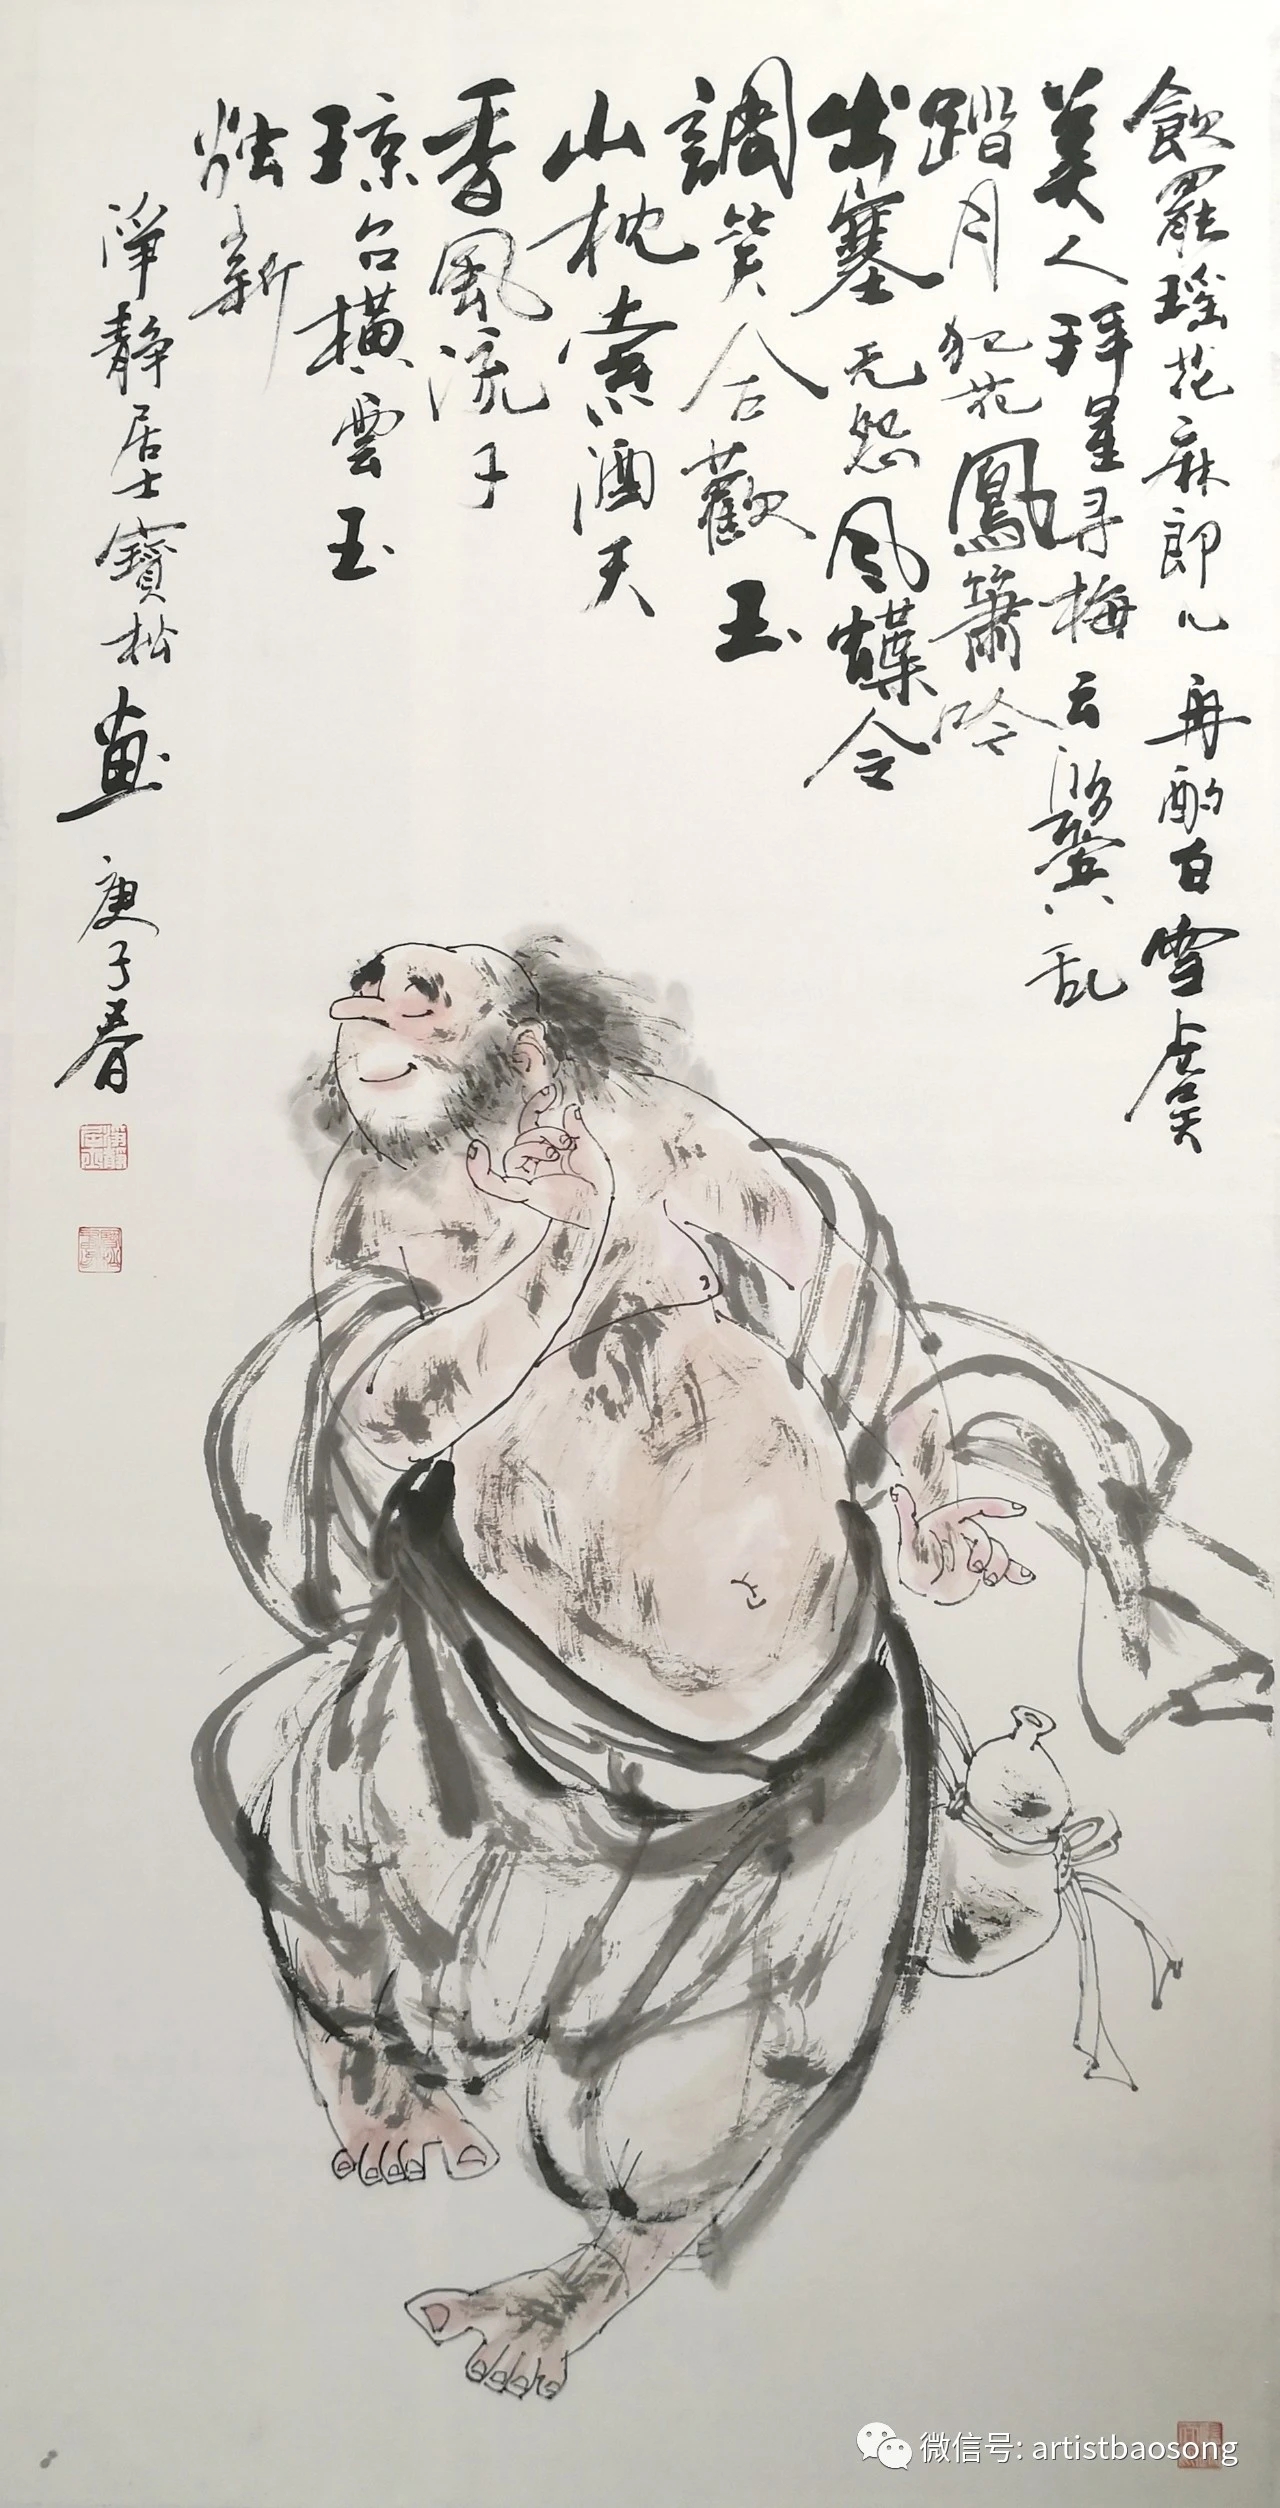 飲罷瑤花麻郎儿再酌白雪虞
美人拜星寻梅云沿鬓乱
踏月犯花鳳簫吟
出塞无怨风蝶令
調笑合歡玉
山枕索酒天
香風流子
琼台橫雲玉
炷新
淨靜居士寶松畫庚子春
微信号: artistbaosong